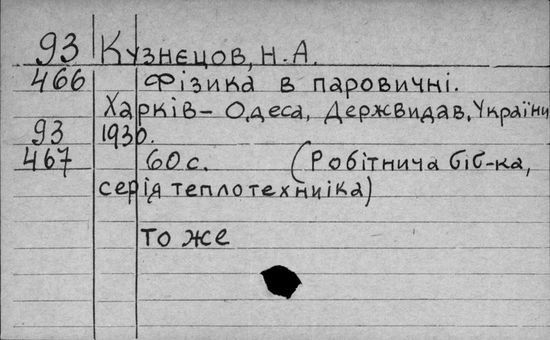 93 Кузнєцов, Н.А.
466 Фізика в паровичні.
Харків – Одеса, Держвидав, України
93 1930.
467 60 с. (Робітнича біб-ка,
серія теплотехниіка)
то же